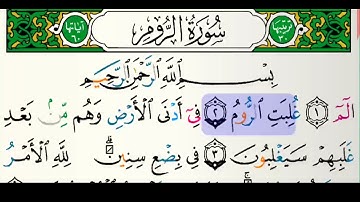 ترتيبها ٣٠ سُورَةُ الرُّومِ آياتها ٦٠
بِسْمِ اللَّهِ الرَّحْمَٰنِ الرَّحِيمِ
الٓمٓ ١ غُلِبَتِ الرُّومُ ٢ فِىٓ أَدْنَى الْأَرْضِ وَهُم مِّنۢ بَعْدِ
غَلَبِهِمْ سَيَغْلِبُونَ ٣ فِى بِضْعِ سِنِينَ ۗ لِلَّهِ الْأَمْرُ